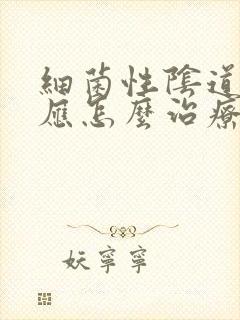 細菌性陰道
應怎麼治療
妖寧寧